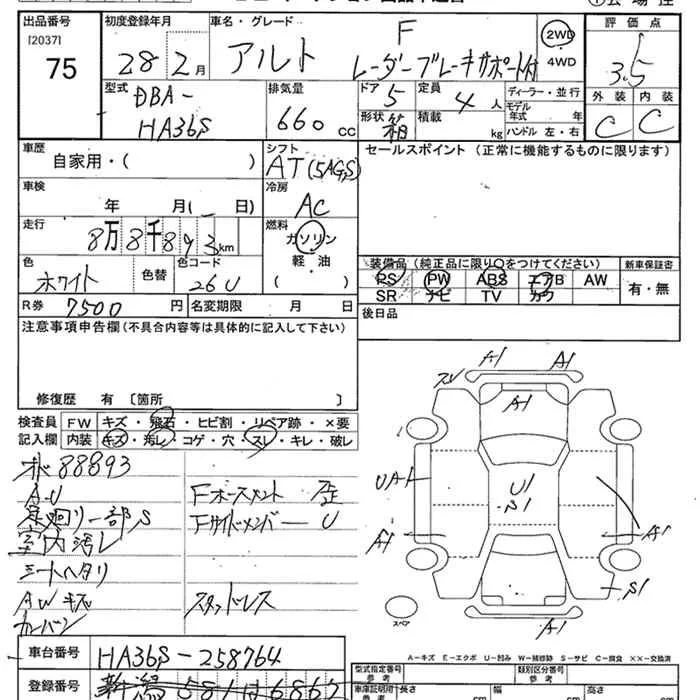 出品番号
[2037]
75
初度登録年月
28 2月
車名・グレード
アルト F
レーダーブレーキサポート付
2WD
4WD
評価点
3.5
型式
DBA-
HA36S
排気量
660 cc
ドア 5
定員 4 人
形状 箱
積載 kg
ディーラー・並行
モデル年式 年
ハンドル 左・右
外装 内装
C C
車歴
自家用・( )
シフト
AT(5AGS)
セールスポイント (正常に機能するものに限ります)
車検
年 月( 日)
冷房
AC
走行
8万8千893km
燃料
ガソリン
軽・油
( )
色
ホワイト
色替
色コード
26U
装備品 (純正品に限り○をつけてください)
新車保証書
PS PW ABS エアB AW
SR ナビ TV カワ
有・無
R券 7500 円
名変期限 月 日
後日品
注意事項申告欄 (不具合内容等は具体的に記入して下さい)
修復歴 有 〔箇所 〕
検査員記入欄
FW キズ・飛石・ヒビ割・リペア跡・×要
内装 キズ・汚レ・コゲ・穴・スレ・キレ・破レ
88893
A.U
足廻り一部S
室内汚レ
シートヘタリ
AWキズ
Fホースメント 歪
FサイドメンバーU
スタッドレス
A1 A1
スリ
A1
UA1
U1
S1
A1
A1
S1
A1
スペア
A-キズ E-エクボ U-凹み W-補修跡 S-サビ C-腐食 ××-交換済
車台番号 HA36S-258764
登録番号 新潟 581 は 6867
型式指定番号
参考
類別区分番号
参考
車庫証明用
参考
長さ cm
幅 cm
高さ cm